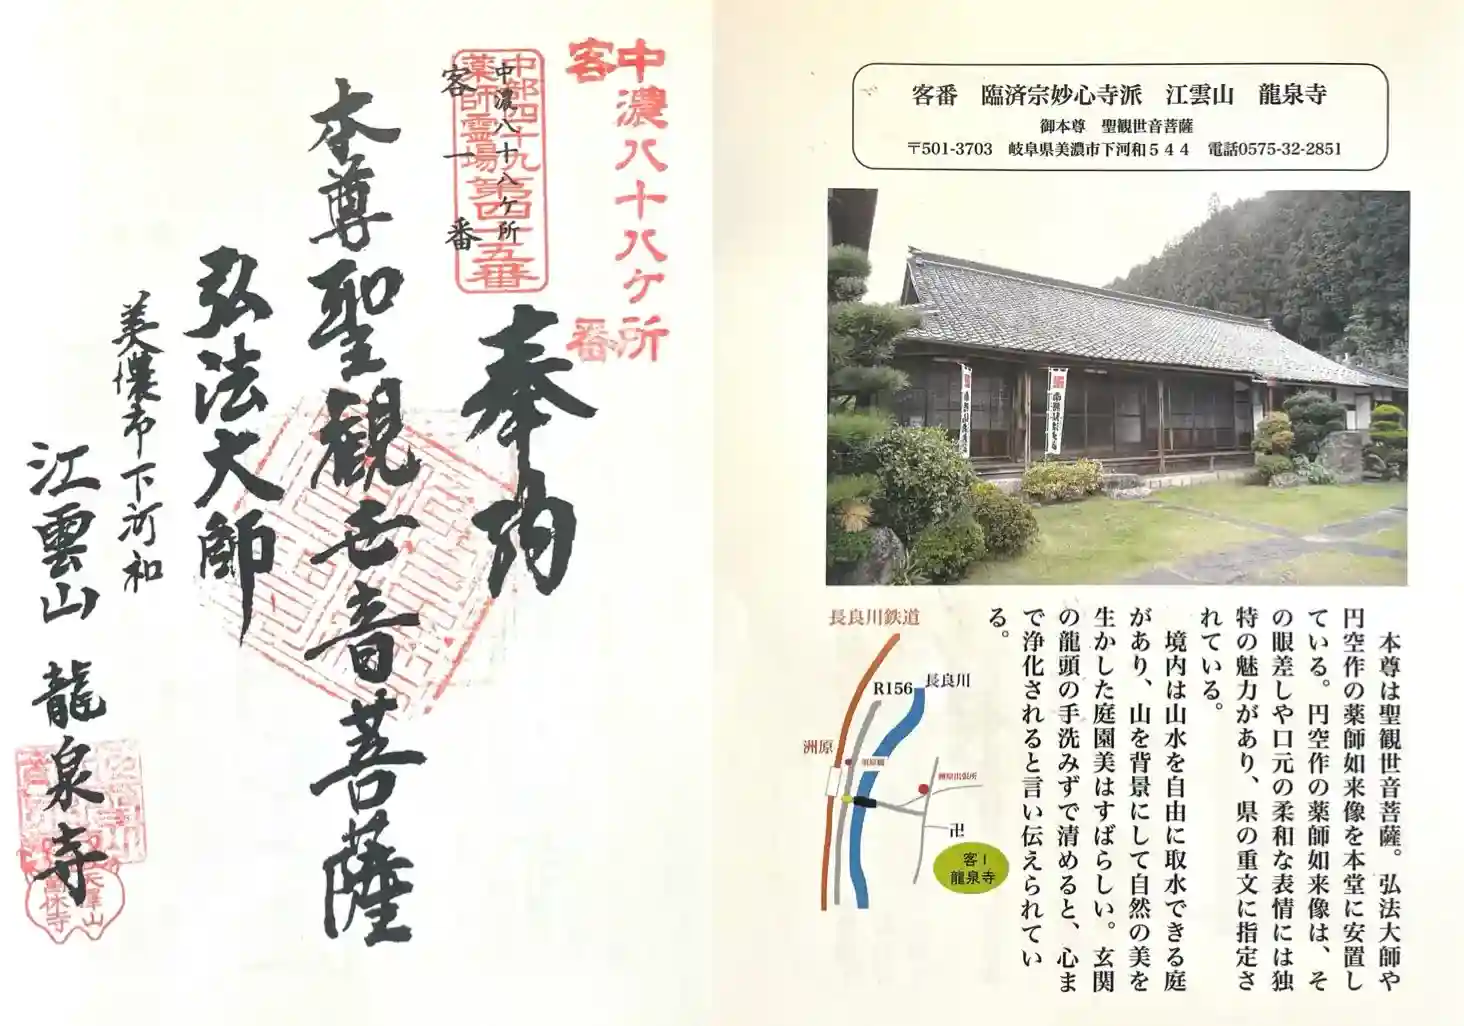 中濃八十八ケ所
客
番
中部四十九
薬師霊場第四十五番
中濃八十八ケ所
客一番
奉納
本尊聖観世音菩薩
弘法大師
美濃市下河和
江雲山 龍泉寺
天澤山
客番 臨済宗妙心寺派 江雲山 龍泉寺
御本尊 聖観世音菩薩
〒501-3703 岐阜県美濃市下河和５４４ 電話0575-32-2851
本尊は聖観世音菩薩。弘法大師や
円空作の薬師如来像を本堂に安置し
ている。円空作の薬師如来像は、そ
の眼差しや口元の柔和な表情には独
特の魅力があり、県の重文に指定さ
れている。
境内は山水を自由に取水できる庭
があり、山を背景にして自然の美を
生かした庭園美はすばらしい。玄関
の龍頭の手洗みずで清めると、心ま
で浄化されると言い伝えられてい
る。
長良川鉄道
R156
長良川
洲原
洲原出張所
卍
客1
龍泉寺